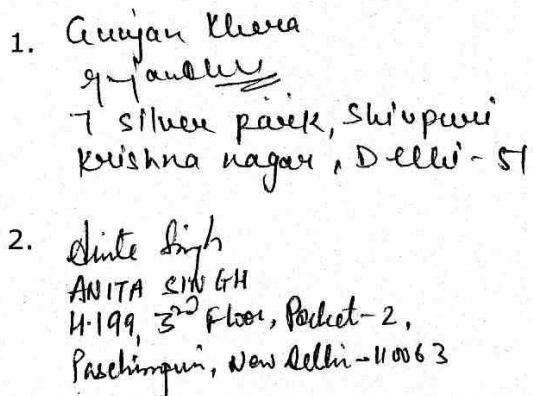 1. Gunjan Khera
7 Silver park, Shivpuri
Krishna nagar, Delhi - 51
2. Anita Singh
ANITA SINGH
H-199, 3rd Floor, Pocket-2,
Paschimpuri, New Delhi-110063